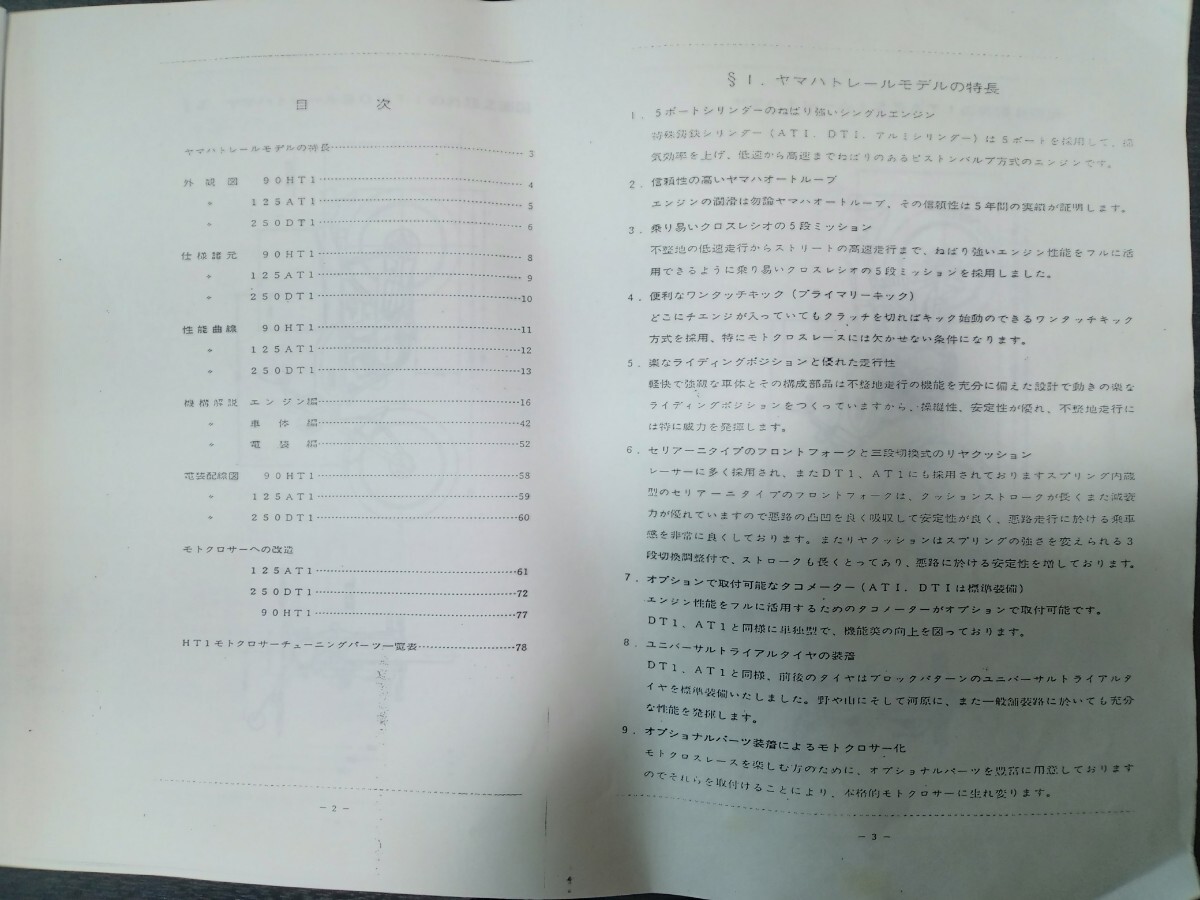 目次
ヤマハトレールモデルの特長……3
外観図 90HT1……4
〃 125AT1……5
〃 250DT1……6
仕様諸元 90HT1……8
〃 125AT1……9
〃 250DT1……10
性能曲線 90HT1……11
〃 125AT1……12
〃 250DT1……13
機構解説 エンジン編……16
〃 車体編……42
〃 電装編……52
電装配線図 90HT1……58
〃 125AT1……59
〃 250DT1……60
モトクロサーへの改造
125AT1……61
250DT1……72
90HT1……77
HT1モトクロサーチューニングパーツ一覧表……78
－2－
§1.ヤマハトレールモデルの特長
1.5ポートシリンダーのねばり強いシングルエンジン
特殊鋳鉄シリンダー(AT1.DT1.アルミシリンダー)は5ポートを採用して、掃
気効率を上げ、低速から高速までねばりのあるピストンバルブ方式のエンジンです。
2.信頼性の高いヤマハオートルーブ
エンジンの潤滑は勿論ヤマハオートルーブ、その信頼性は5年間の実績が証明します。
3.乗り易いクロスレシオの5段ミッション
不整地の低速走行からストリートの高速走行まで、ねばり強いエンジン性能をフルに活
用できるように乗り易いクロスレシオの5段ミッションを採用しました。
4.便利なワンタッチキック(プライマリーキック)
どこにチエンジが入っていてもクラッチを切ればキック始動のできるワンタッチキック
方式を採用、特にモトクロスレースには欠かせない条件になります。
5.楽なライディングポジションと優れた走行性
軽快で強靱な車体とその構成部品は不整地走行の機能を充分に備えた設計で動きの楽な
ライディングポジションをつくっていますから、操縦性、安定性が優れ、不整地走行に
は特に威力を発揮します。
6.セリアーニタイプのフロントフォークと三段切換式のリヤクッション
レーサーに多く採用され、またDT1、AT1にも採用されておりますスプリング内蔵
型のセリアーニタイプのフロントフォークは、クッションストロークが長くまた減衰
力が優れていますので悪路の凸凹を良く吸収して安定性が良く、悪路走行に於ける乗車
感を非常に良くしております。またリヤクッションはスプリングの強さを変えられる3
段切換調整付で、ストロークも長くとってあり、悪路に於ける安定性を増しております。
7.オプションで取付可能なタコメーター(AT1.DT1は標準装備)
エンジン性能をフルに活用するためのタコメーターがオプションで取付可能です。
DT1、AT1と同様に単独型で、機能美の向上を図っております。
8.ユニバーサルトライアルタイヤの装着
DT1、AT1と同様、前後のタイヤはブロックパターンのユニバーサルトライアルタ
イヤを標準装備いたしました。野や山にそして河原に、また一般舗装路に於いても充分
な性能を発揮します。
9.オプショナルパーツ装着によるモトクロサー化
モトクロスレースを楽しむ方のために、オプショナルパーツを豊富に用意しております
のでそれらを取付けることにより、本格的モトクロサーに生れ変ります。
－3－